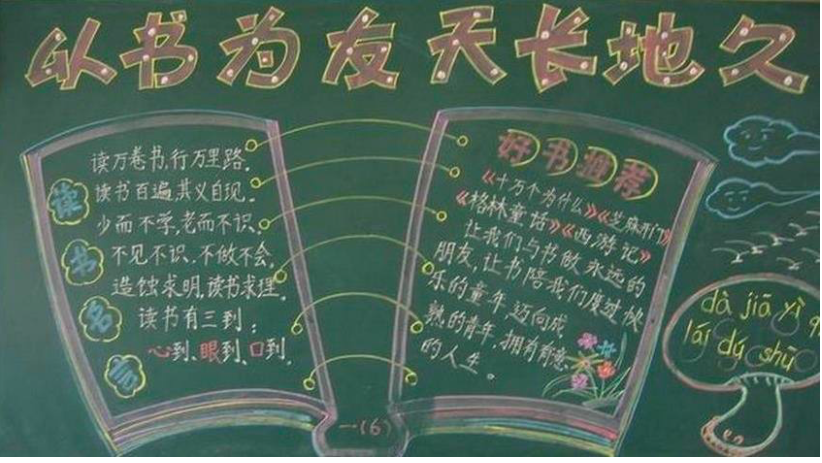 以书为友天长地久
读书名言
读万卷书,行万里路。
读书百遍,其义自现。
少而不学,老而不识。
不见不识、不做不会。
造蚀求明,读书求理。
读书有三到:
心到、眼到、口到。
好书推荐
《十万个为什么》《芝麻开门》
《格林童话》《西游记》
让我们与书做永远的
朋友,让书陪我们度过快
乐的童年,迈向成
熟的青年,拥有有意
的人生。
一(6)
dà jiā yì q
lái dú shū